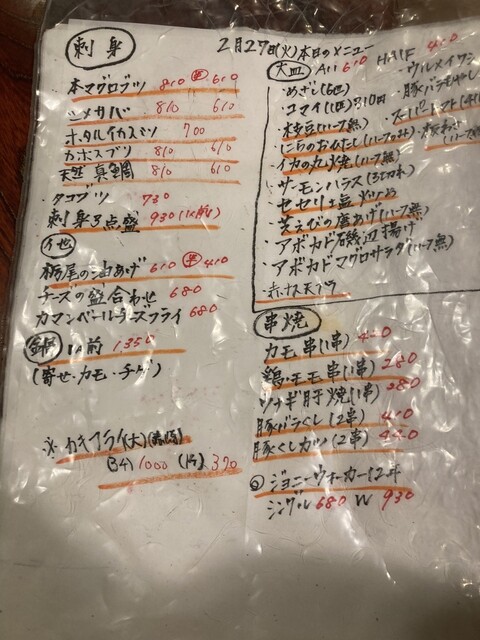 2月27日(火)本日のメニュー
刺身
本マグロブツ 810 半 610
シメサバ 810 610
ホタルイカスミツ 700
カホスブツ 810 610
天然 真鯛 810 610
タコブツ 730
刺身3点盛 930(1人前)
栃尾の油あげ 610 半 410
チーズの盛合わせ 680
カマンベールチーズフライ 680
鍋 1人前 1,350
(寄せ・カモ・チゲ)
カキフライ(大)
(3ケ) 1000 (1ケ) 370
大皿 All 610 HALF 410
・めざし(6匹) ・ウルメイワシ
・コマイ(1匹)310円 ・豚バラモヤシ
・枝豆(ハーフ無) ・スーパートマト
・にらのおひたし(ハーフのみ)
・イカの丸焼(ハーフ無)
・サーモンハラス(3切れ)
・セセリ塩
・芝えびの唐あげ(ハーフ無)
・アボカド磯辺揚げ
・アボカドマグロサラダ(ハーフ無)
・赤ナス天プラ
串焼
カモ串(1串) 410
鶏モモ串(1串) 280
ウナギ肝焼(1串) 380
豚バラくし(2串) 410
豚くしカツ(2串) 440
◎ジョニーウォーカー12年
シングル 680 W 930